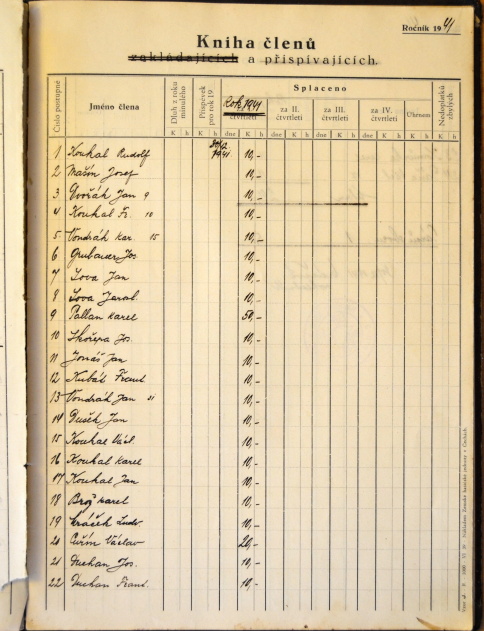 Ročník 1941
Kniha členů
zakládajících a přispívajících.
Číslo postupné
Jméno člena
Dluh z roku minulého
Příspěvek pro rok 19
Splaceno
Rok 1941
čtvrtletí
za II. čtvrtletí
za III. čtvrtletí
za IV. čtvrtletí
Úhrnem
Nedoplatků zbylých
K h K h dne K h dne K h dne K h dne K h K h K h
1 Kouhal Rudolf 1941. 10,-
2 Mašín Josef 10,-
3 Dvořák Jan 9 10,-
4 Kouhal Fr. 10 10,-
5. Vondrák Kar. 15 10,-
6 Grubauer Jos 10,-
7 Lova Jan 10,-
8 Lova Jarol. 10,-
9 Pallan Karel 50,-
10 Skořepa Jos. 10,-
11 Jonáš Jan 10,-
12 Kubát Frant 10,-
13 Vondrák Jan 10,-
14 Dušek Jan 10,-
15 Kouhal Václ 10,-
16 Kouhal Karel 10,-
17 Kouhal Jan 10,-
18 Brož Karel 10,-
19 Ludv 10,-
20 Václav 20,-
21 Duchan Jos. 10,-
22 Duchan Frant. 10,-